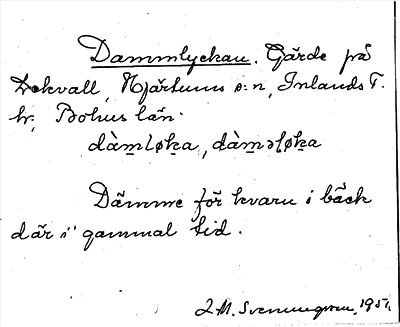 Dammlyckan. Gärde på
Lekvall, Hjärtums s:n, Inlands T.
hr, Bohus län.
dàm̲løk̲a, dàm̲əløk̲a
Dämme för kvarn i bäck
där i gammal tid.
J.M. Svenningson, 1951.